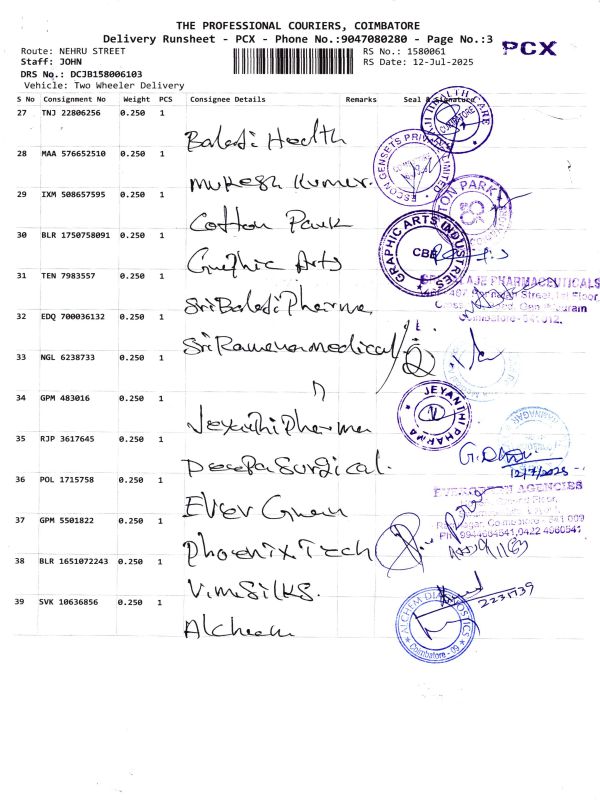 THE PROFESSIONAL COURIERS, COIMBATORE
Delivery Runsheet - PCX - Phone No.:9047080280 - Page No.:3
PCX
Route: NEHRU STREET
RS No.: 1580061
Staff: JOHN
RS Date: 12-Jul-2025
DRS No.: DCJB158006103
Vehicle: Two Wheeler Delivery
S No Consignment No Weight PCS Consignee Details Remarks Seal & Signature
27 TNJ 22806256 0.250 1
Balaji Health
HEALTH CARE
COIMBATORE
28 MAA 576652510 0.250 1
Mukesh Kumar.
ESCON GENSETS PRIVATE LIMITED
29 IXM 508657595 0.250 1
Cotton Park
COTTON PARK
30 BLR 1750758091 0.250 1
Graphic Arts
GRAPHIC ARTS INDUSTRIES
CBE
31 TEN 7983557 0.250 1
Sri Balaji Pharma
PHARMACEUTICALS
Street, 1st Floor,
Coimbatore - 641 012.
32 EDQ 700036132 0.250 1
Sri Ramana medical
33 NGL 6238733 0.250 1
"
34 GPM 483016 0.250 1
Jeyanthi Pharma
JEYANTHI PHARMA
35 RJP 3617645 0.250 1
Deepa Surgical.
12/7/2025
36 POL 1715758 0.250 1
Ever Green
EVERGREEN AGENCIES
Coimbatore - 641 009
37 GPM 5501822 0.250 1
Phoenix Tech
38 BLR 1651072243 0.250 1
Vimsilks.
2231739
39 SVK 10636856 0.250 1
Alchem
ALCHEM DIAGNOSTICS
Coimbatore - 09